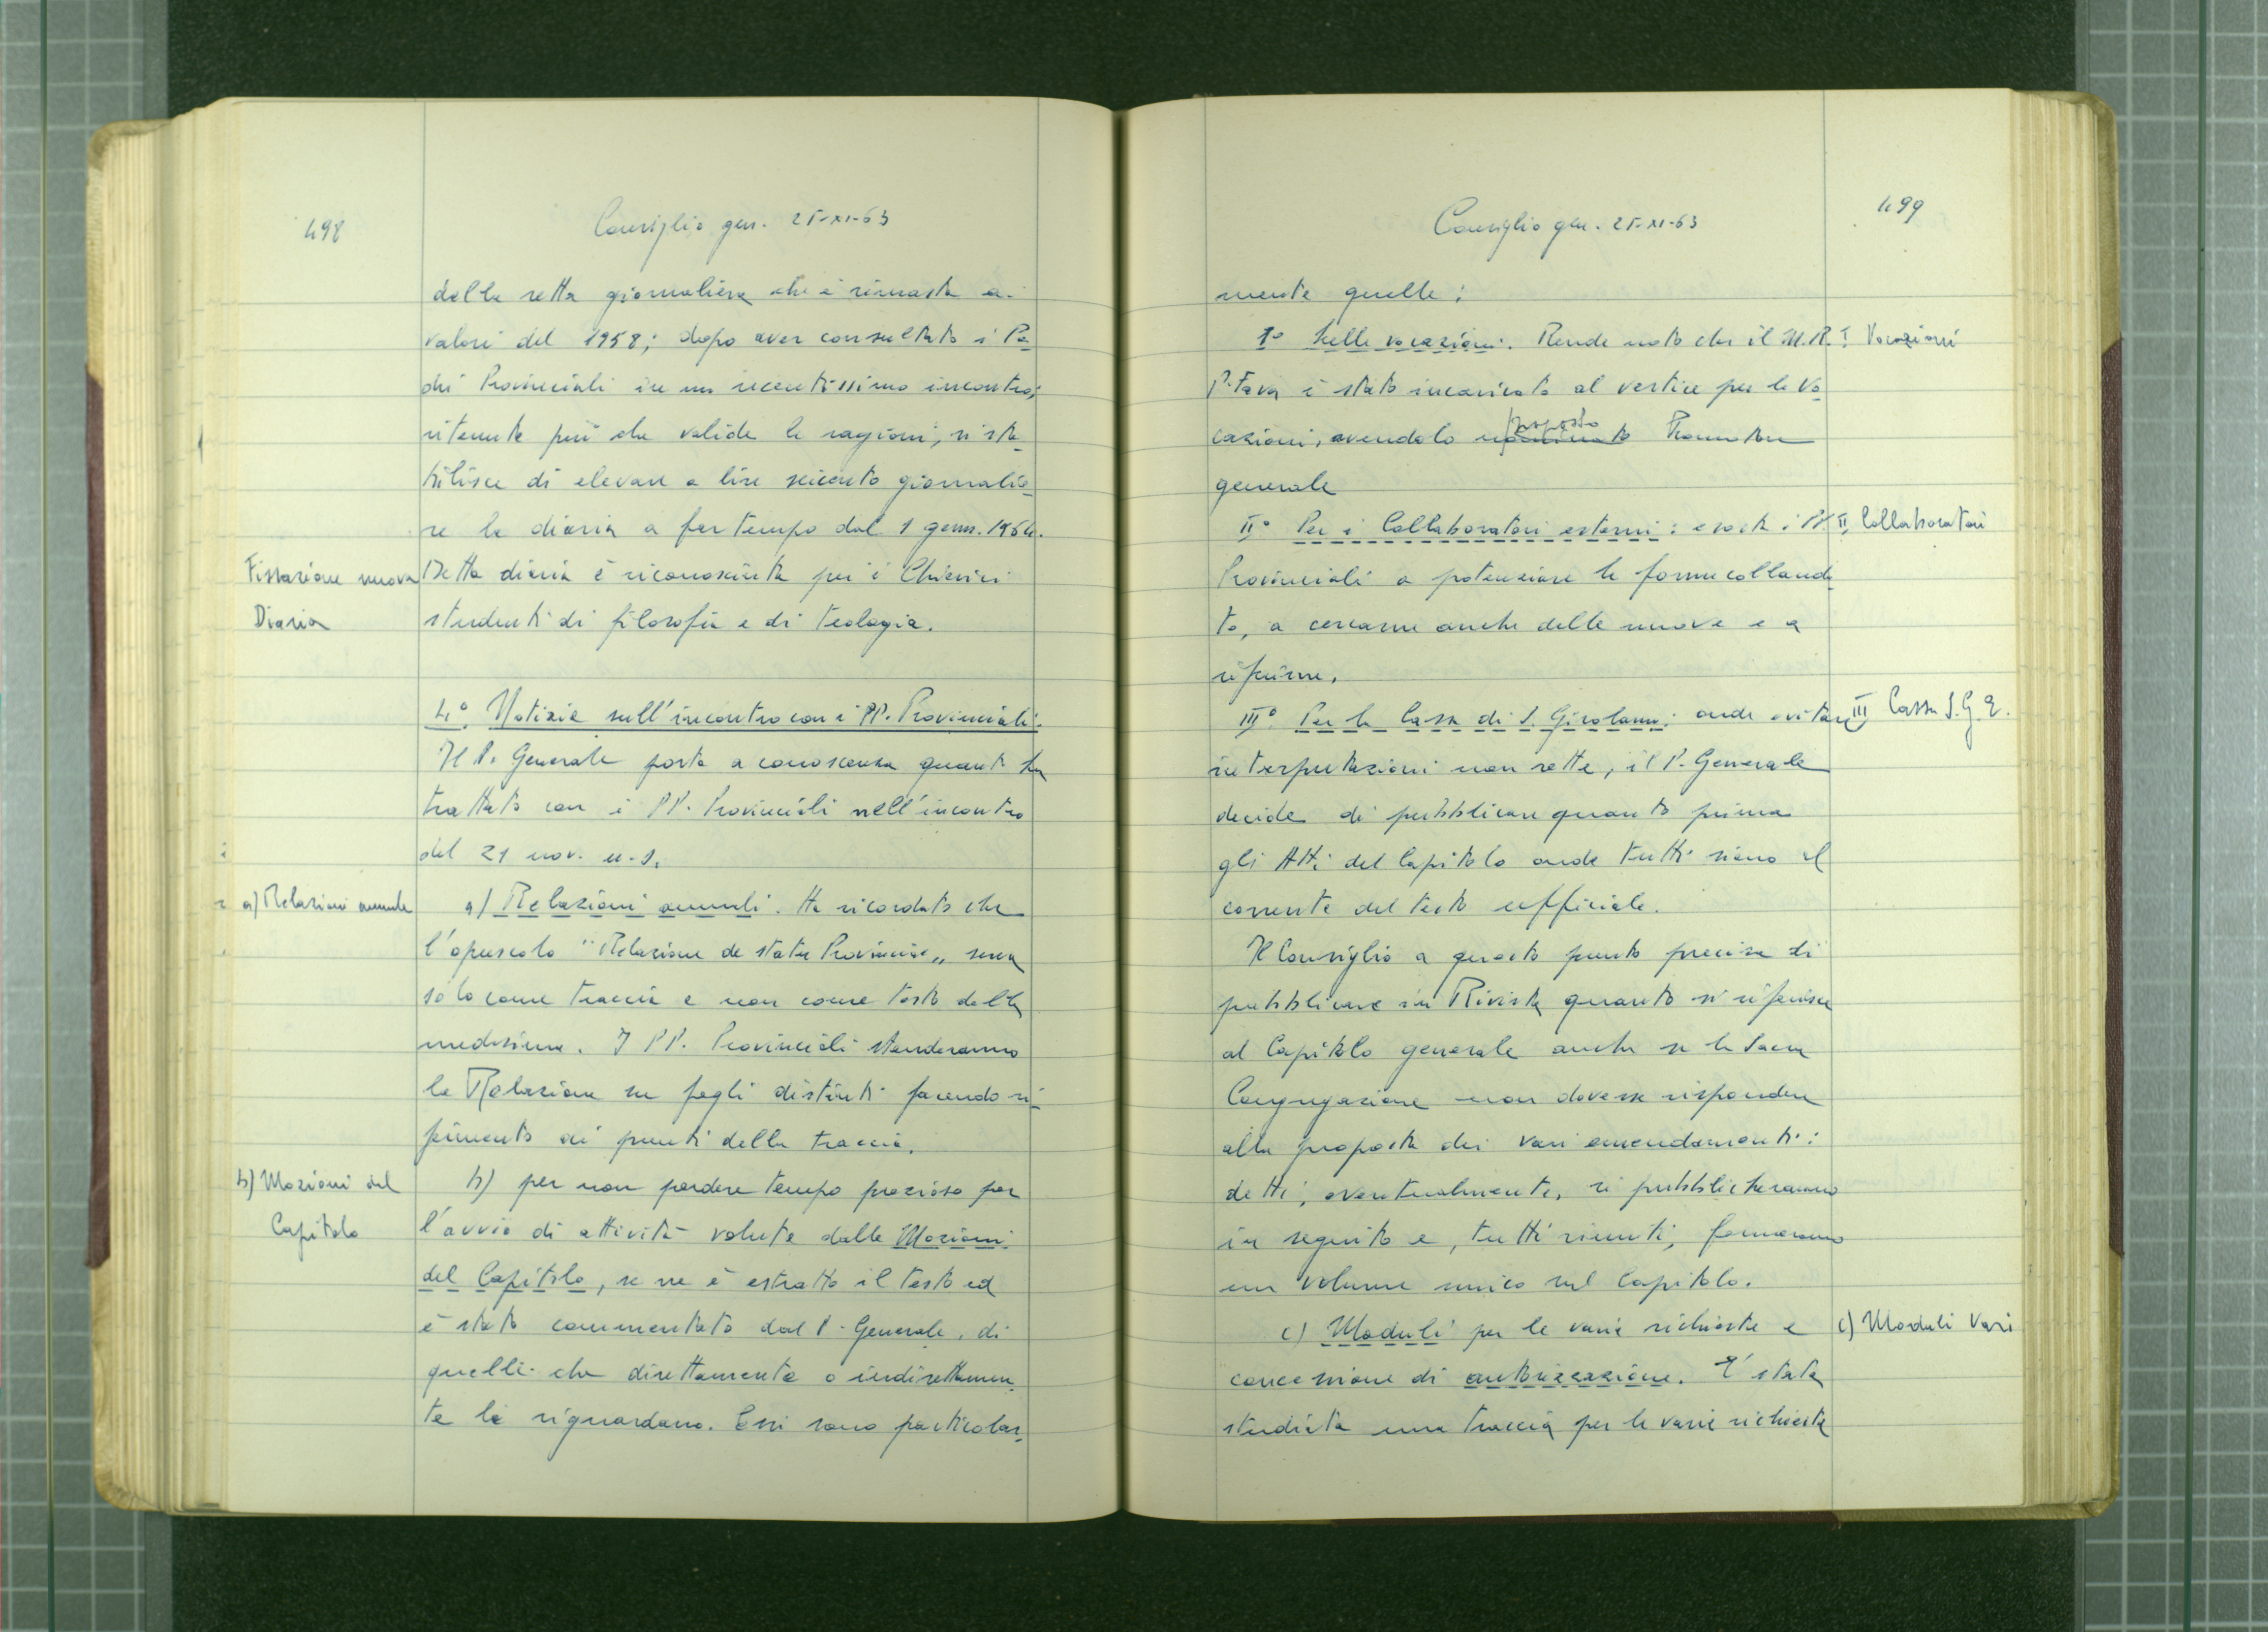 498
Consiglio gen. 25-XI-63
della retta giornaliera che è rimasta a.
valori del 1958; dopo aver consultato i Pa
dri Provinciali in un recentissimo incontro;
ritenute più che valide le ragioni, si sta_
bilisce di elevare a lire seicento giornalie_
re la diaria a far tempo dal 1 genn. 1964.
Fissazione nuova
Diaria
Detta diaria è riconosciuta per i Chierici
studenti di filosofia e di teologia.
4° Notizie sull'incontro con i PP. Provinciali.
Il P. Generale porta a conoscenza quanto ha
trattato con i PP. Provinciali nell'incontro
del 21 nov. u.s.
a) Relazioni annuale
a) Relazioni annuali. Ha ricordato che
l'opuscolo "Relazione de statu Provinciae„ serva
solo come traccia e non come testo della
medesima. I PP. Provinciali stenderanno
la Relazione su fogli distinti facendo ri_
ferimento ai punti della traccia.
b) Mozioni del
Capitolo
b) per non perdere tempo prezioso per
l'avvio di attività volute dalle Mozioni
del Capitolo, se ne è estratto il testo ed
è stato commentato dal P. Generale, di
quelli che direttamente o indirettamen_
te li riguardano. Essi sono particolar_
499
Consiglio gen. 25-XI-63
mente quelle:
1° Sulle vocazioni. Rende noto che il M.R.
I Vocazioni
P. Fava è stato incaricato al vertice per le Vo_
cazioni, avendolo nominato proposto Promotore
generale
II° Per i Collaboratori esterni: esorta i PP.
II, Collaboratori
Provinciali a potenziare le forme collauda_
te, a cercarne anche delle nuove e a
riferirne.
III° Per la Cassa di S. Girolamo: onde evitare
III Cassa S.G.E.
interpretazioni non rette, il P. Generale
decide di pubblicare quanto prima
gli Atti del Capitolo onde tutti siano al
corrente del testo ufficiale.
Il Consiglio a questo punto precisa di
pubblicare in Rivista quanto si riferisce
al Capitolo generale anche se la Sacra
Congregazione non dovesse rispondere
alla proposta dei vari emendamenti:
detti, eventualmente, si pubblicheranno
in seguito e, tutti riuniti, formeranno
un volume unico sul Capitolo.
c) Moduli per le varie richieste e
c) Moduli Vari
concessione di autorizzazione. E' stata
studiata una traccia per le varie richieste